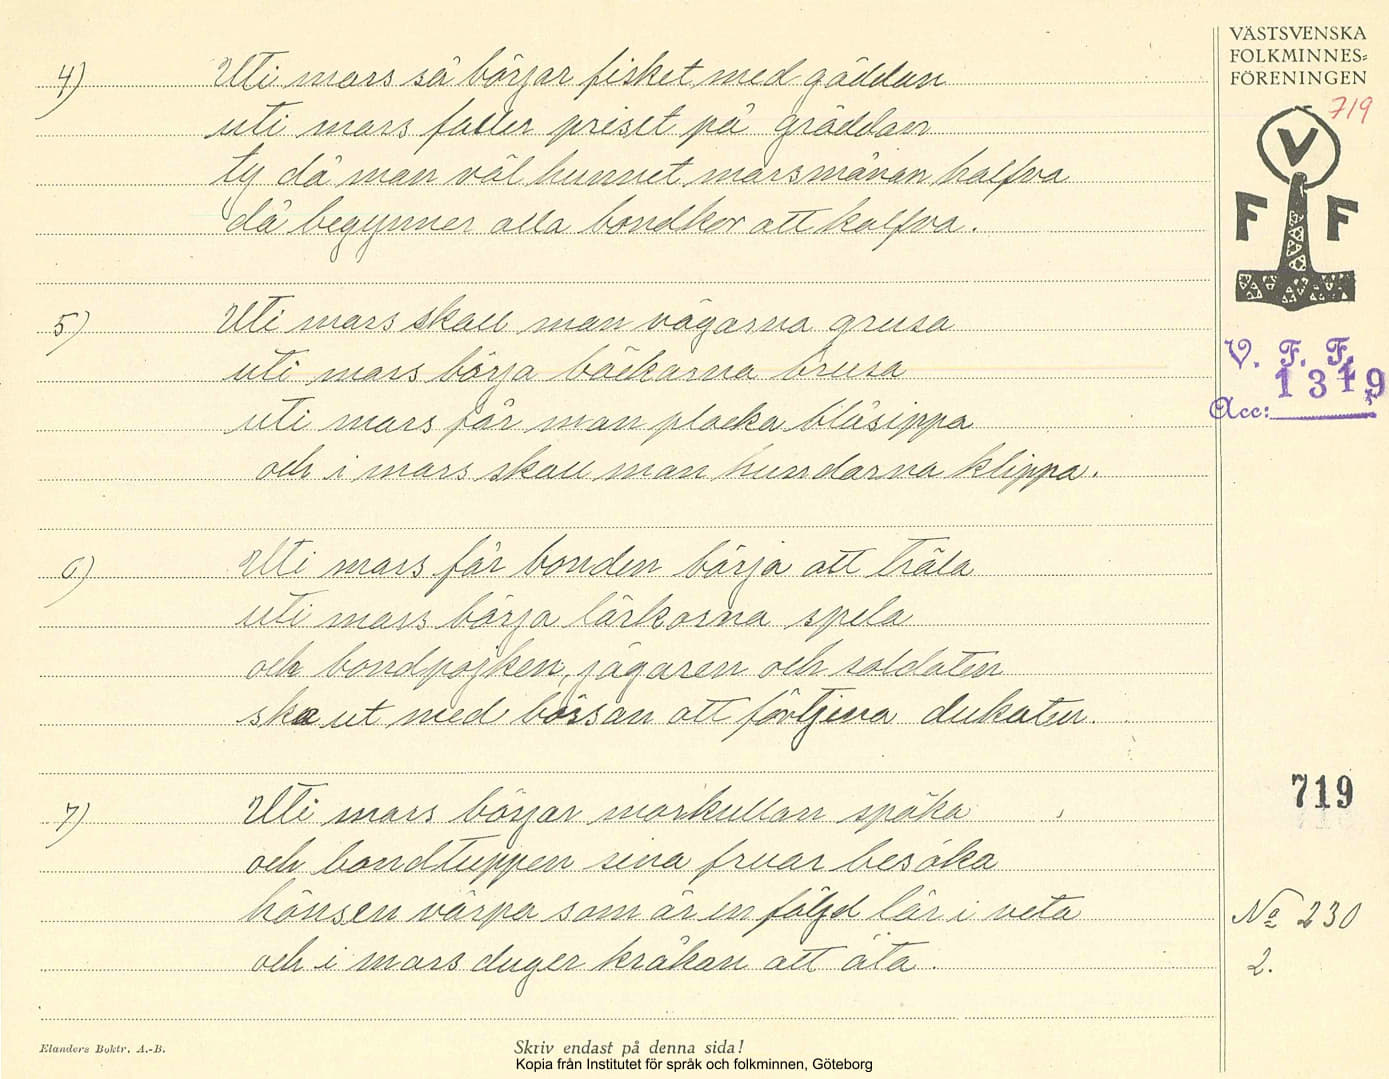 VÄSTSVENSKA
FOLKMINNES=
FÖRENINGEN
719
V
F F
V. F. F.
1319
Acc:
4) Uti mars så börjar fisket med gäddan
uti mars faller priset på gräddan
ty då man väl hunnet marsmånan halfva
då begynner alla bondkor att kalfva.
5) Uti mars skall man vägarna grusa
uti mars börja bäckarna brusa
uti mars får man plocka blåsippa
och i mars skall man hundarna klippa.
6) Uti mars får bonden börja att träla
uti mars börja lärkorna spela
och bondpojken, jägaren och soldaten
ska ut med bössan att förtjena dukaten.
7) Uti mars börjar morkullan spöka
och bondtuppen sina fruar besöka
hönsen värpa som är en följd lär i veta
och i mars duger kråkan att äta.
719
No 230
2.
Elanders Boktr. A.-B.
Skriv endast på denna sida!
Kopia från Institutet för språk och folkminnen, Göteborg